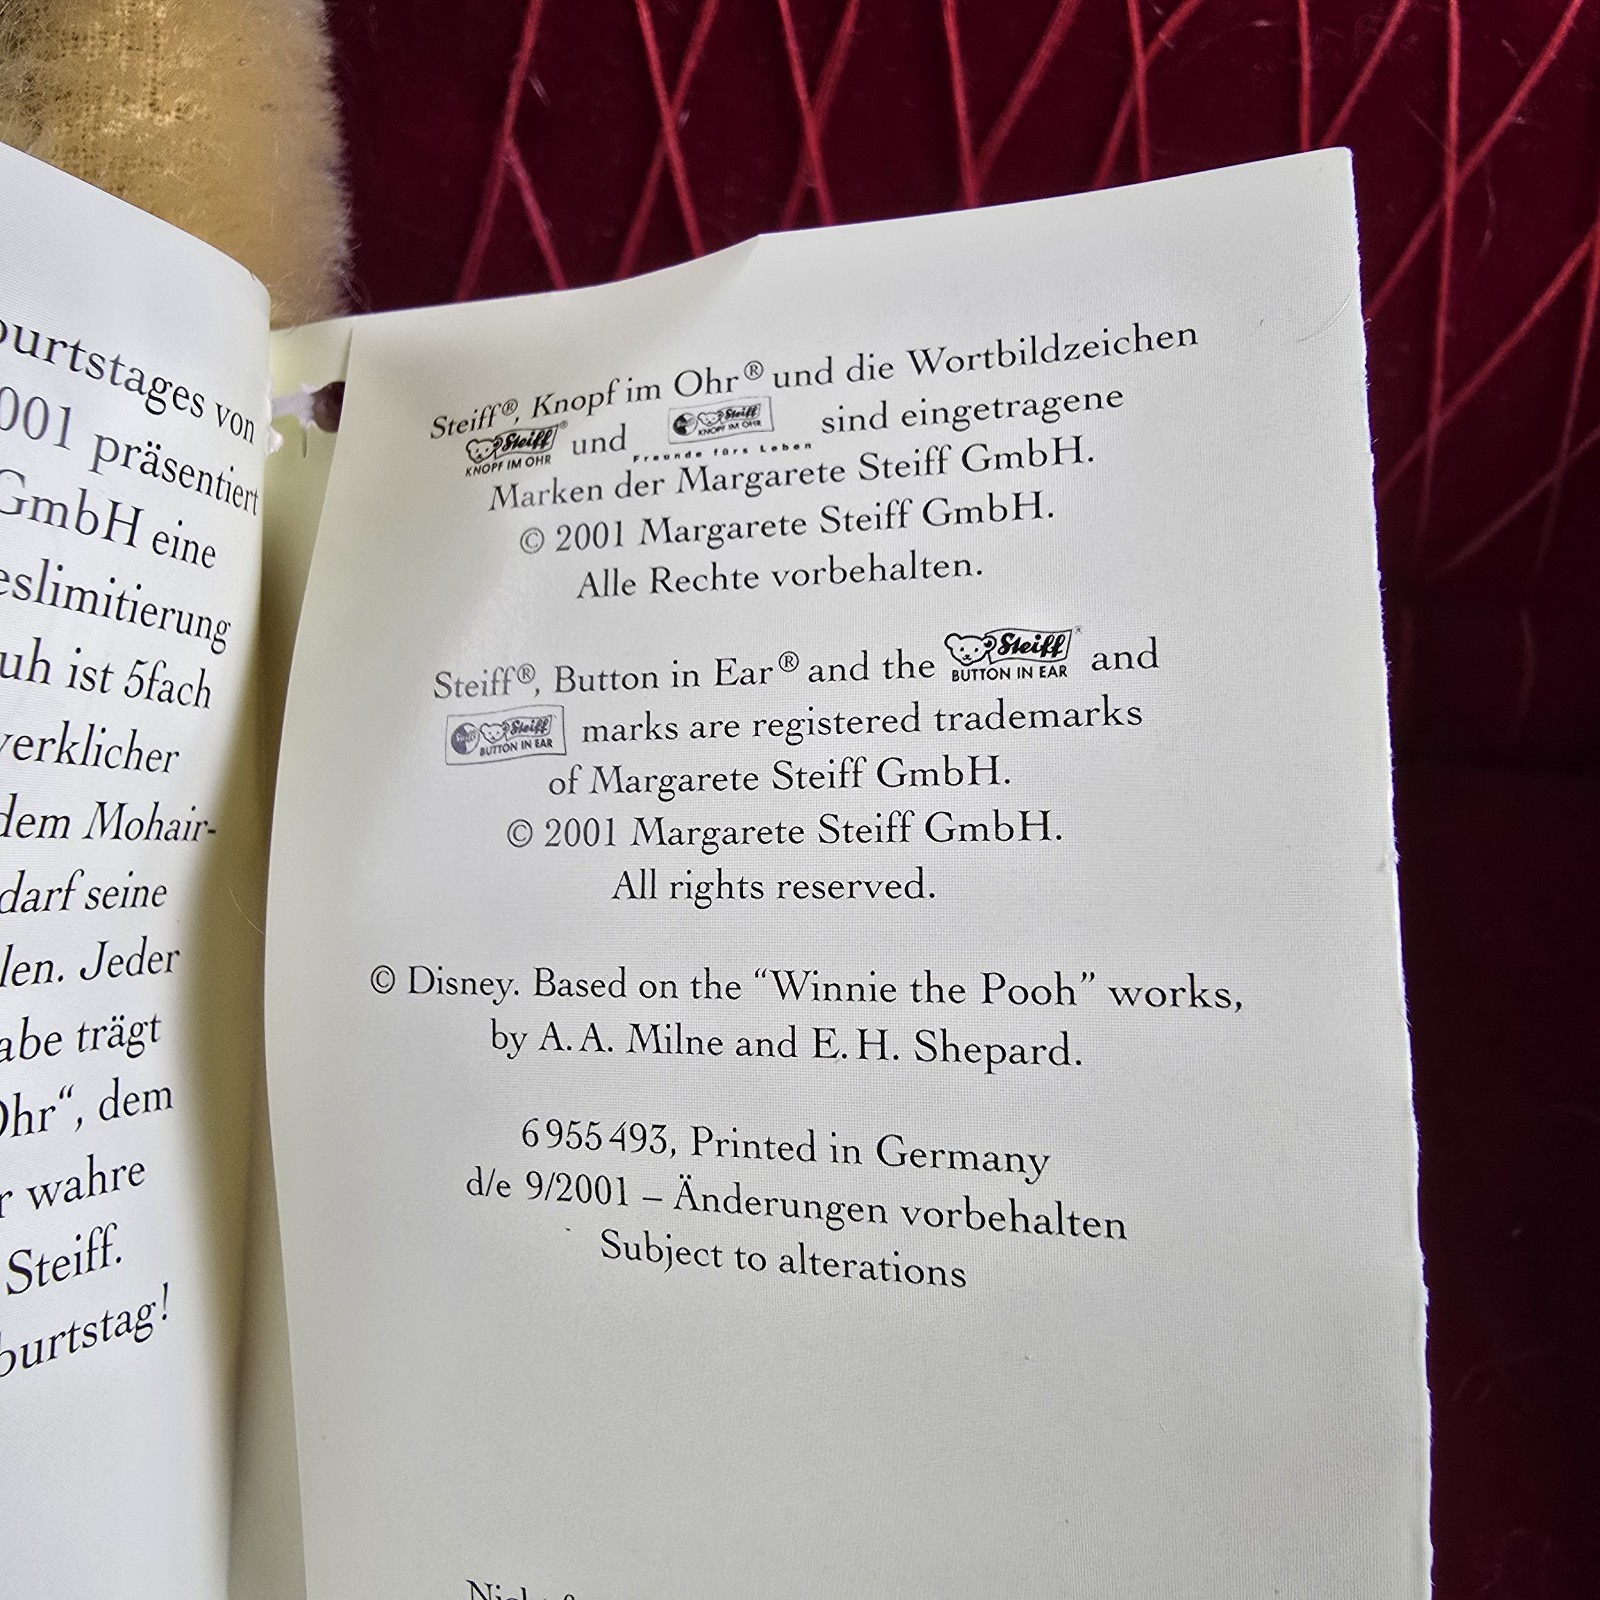 von
001 präsentiert
GmbH eine
ist 5fach
dem Mohair-
darf seine
Jeder
trägt
dem
wahre
Steiff.
Steiff®, Knopf im Ohr® und die Wortbildzeichen
Steiff KNOPF IM OHR und Steiff KNOPF IM OHR Freunde fürs Leben sind eingetragene
Marken der Margarete Steiff GmbH.
© 2001 Margarete Steiff GmbH.
Alle Rechte vorbehalten.
Steiff®, Button in Ear® and the Steiff BUTTON IN EAR and
Steiff BUTTON IN EAR marks are registered trademarks
of Margarete Steiff GmbH.
© 2001 Margarete Steiff GmbH.
All rights reserved.
© Disney. Based on the “Winnie the Pooh” works,
by A. A. Milne and E. H. Shepard.
6 955 493, Printed in Germany
d/e 9/2001 – Änderungen vorbehalten
Subject to alterations